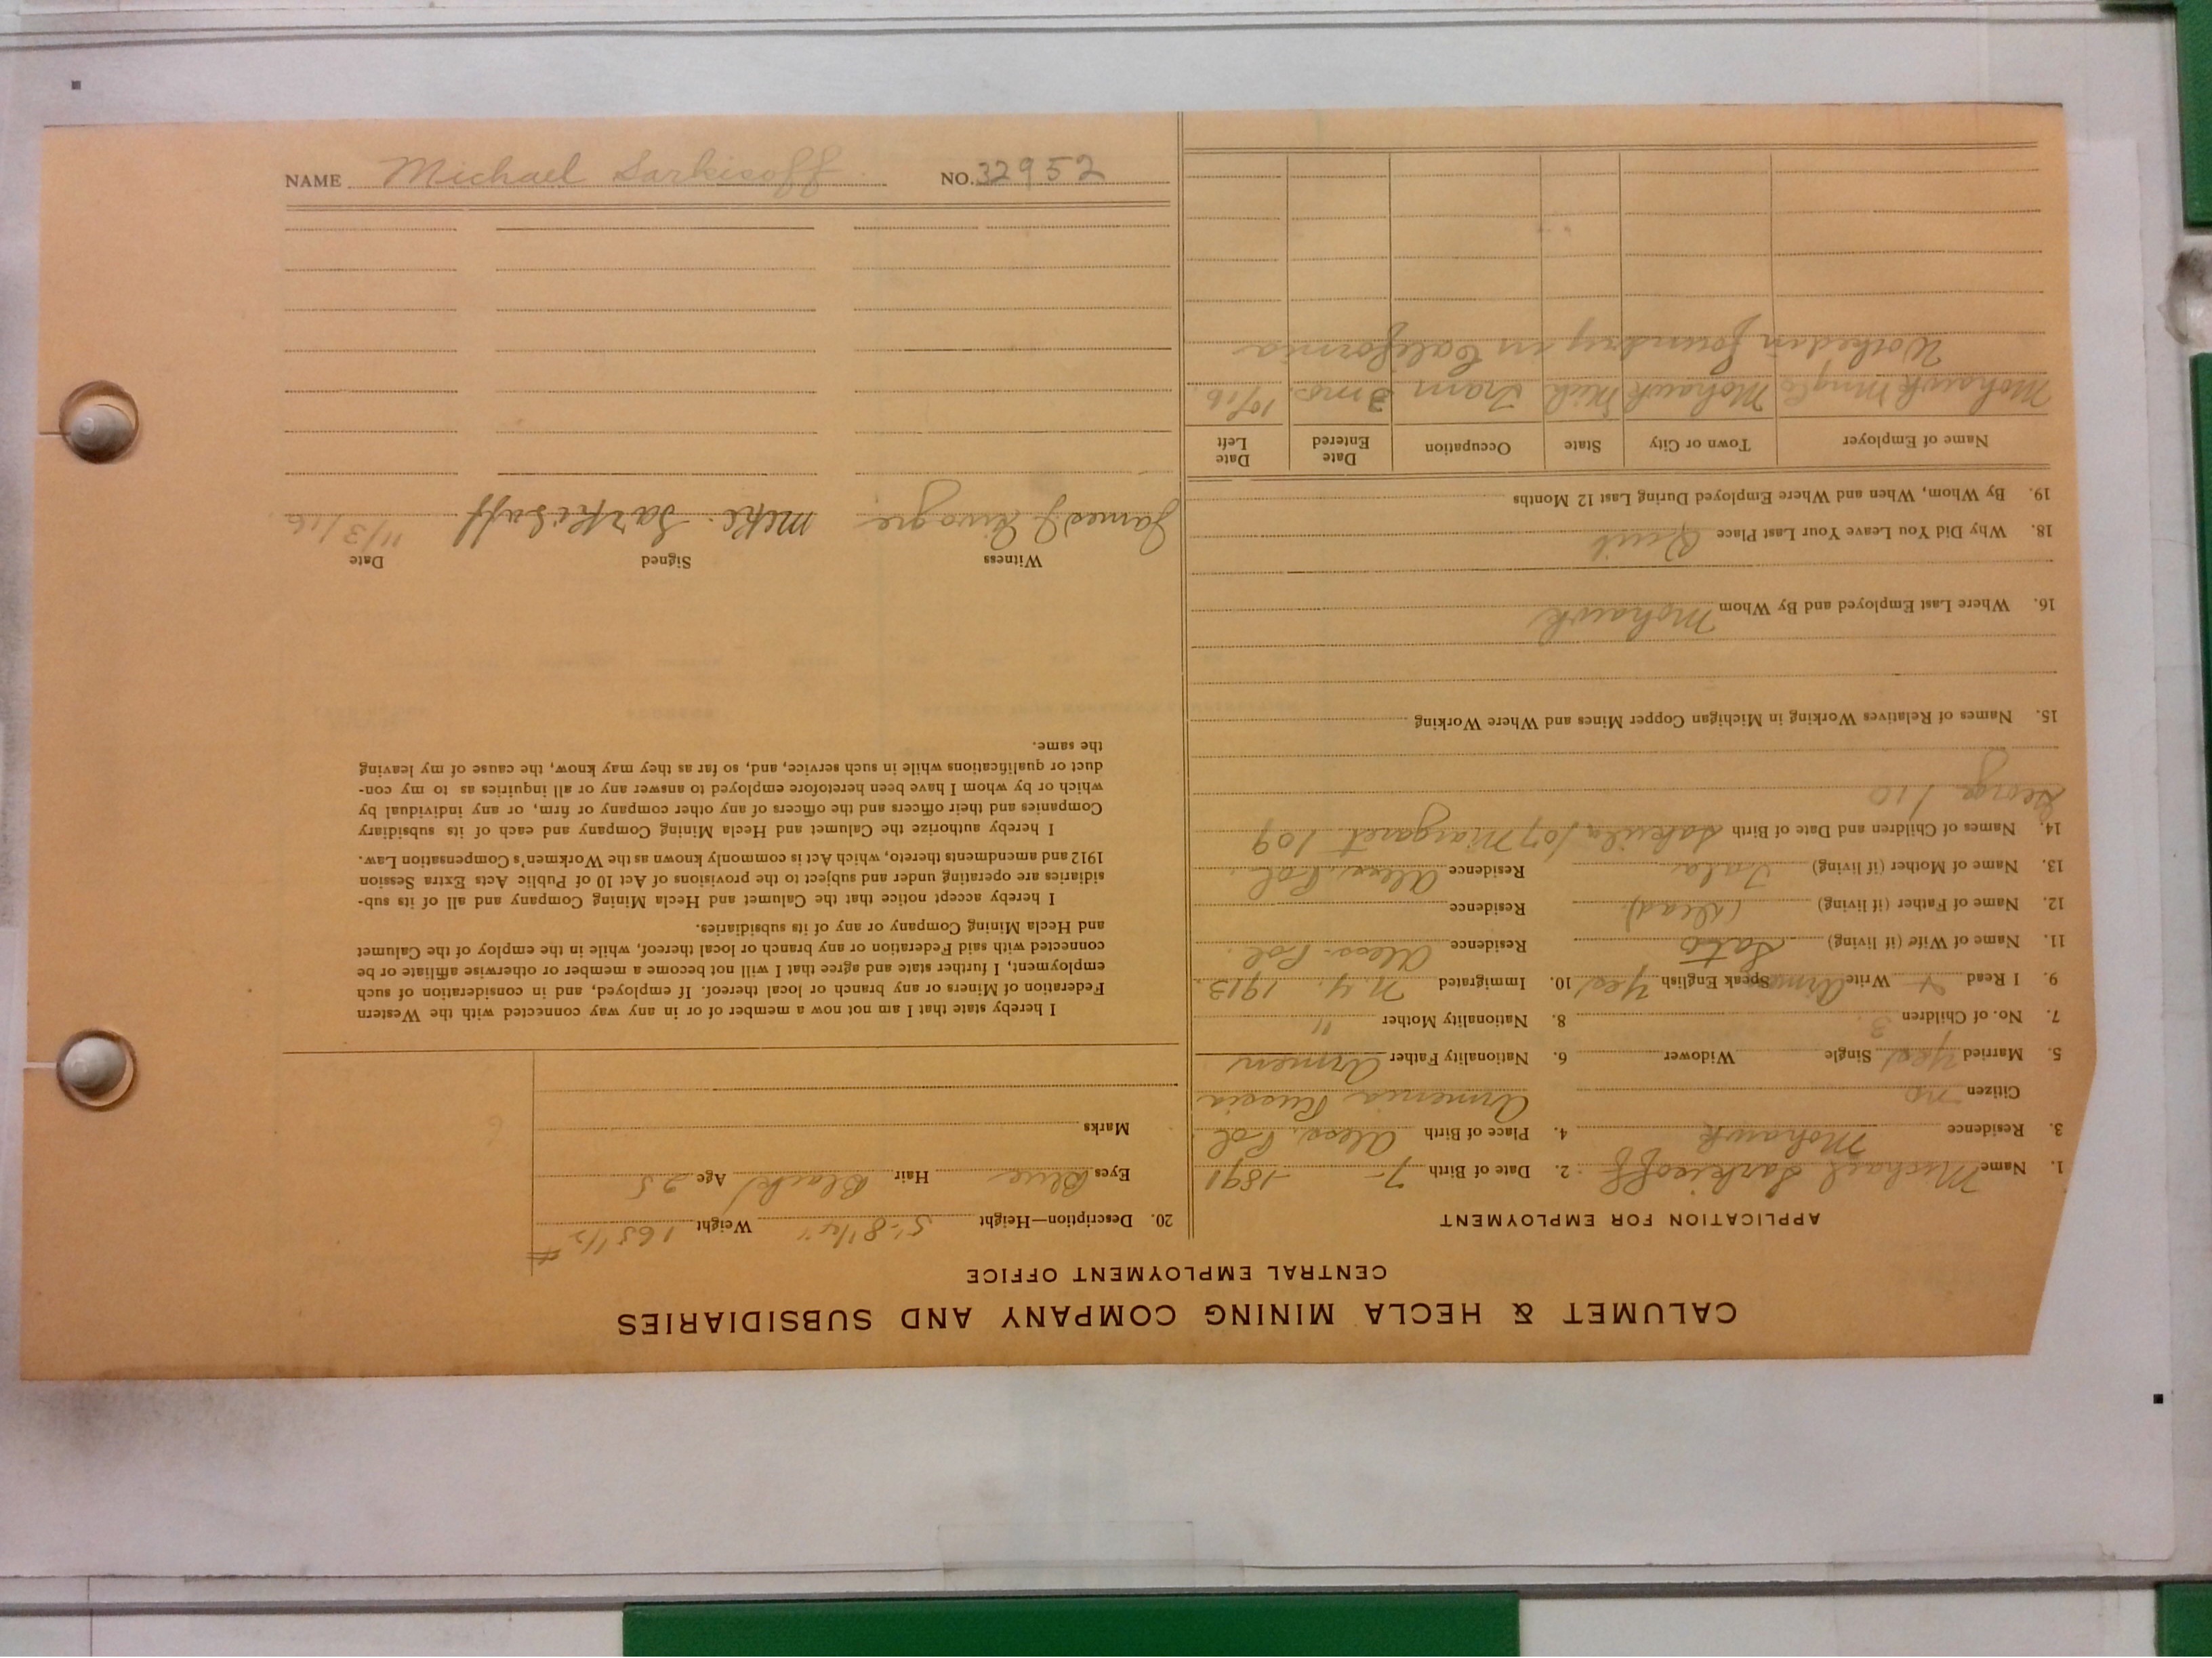 CALUMET & HECLA MINING COMPANY AND SUBSIDIARIES
CENTRAL EMPLOYMENT OFFICE
APPLICATION FOR EMPLOYMENT
1. Name Michael Sarkisoff 2. Date of Birth 7- -1891
3. Residence Mohawk 4. Place of Birth Alex. Pol
Citizen no Armenia Russia
5. Married Yes Single Widower 6. Nationality Father Armen
7. No. of Children 3. 8. Nationality Mother "
9. I Read + Write Armen Speak English Yes 10. Immigrated N.Y. 1913
11. Name of Wife (if living) Sato Residence Alex. Pol.
12. Name of Father (if living) (Dead) Residence
13. Name of Mother (if living) Residence Alex. Pol.
14. Names of Children and Date of Birth /07 Margaret /09
George /10
15. Names of Relatives Working in Michigan Copper Mines and Where Working
16. Where Last Employed and By Whom Mohawk
18. Why Did You Leave Your Last Place Quit
19. By Whom, When and Where Employed During Last 12 Months
Name of Employer Town or City State Occupation Date Entered Date Left
Mohawk Mng Co Mohawk Mich Tram 3 mos. 10/16
Worked in foundry in California
20. Description—Height 5'-8 1/2" Weight 165 1/2 #
Eyes Blue Hair Black Age 25
Marks
I hereby state that I am not now a member of or in any way connected with the Western
Federation of Miners or any branch or local thereof. If employed, and in consideration of such
employment, I further state and agree that I will not become a member or otherwise affiliate or be
connected with said Federation or any branch or local thereof, while in the employ of the Calumet
and Hecla Mining Company or any of its subsidiaries.
I hereby accept notice that the Calumet and Hecla Mining Company and all of its sub-
sidiaries are operating under and subject to the provisions of Act 10 of Public Acts Extra Session
1912 and amendments thereto, which Act is commonly known as the Workmen's Compensation Law.
I hereby authorize the Calumet and Hecla Mining Company and each of its subsidiary
Companies and their officers and the officers of any other company or firm, or any individual by
which or by whom I have been heretofore employed to answer any or all inquiries as to my con-
duct or qualifications while in such service, and, so far as they may know, the cause of my leaving
the same.
Witness Signed Date
James J. Mike. Sarkisoff 11/3/16
NAME Michael Sarkisoff NO. 32952